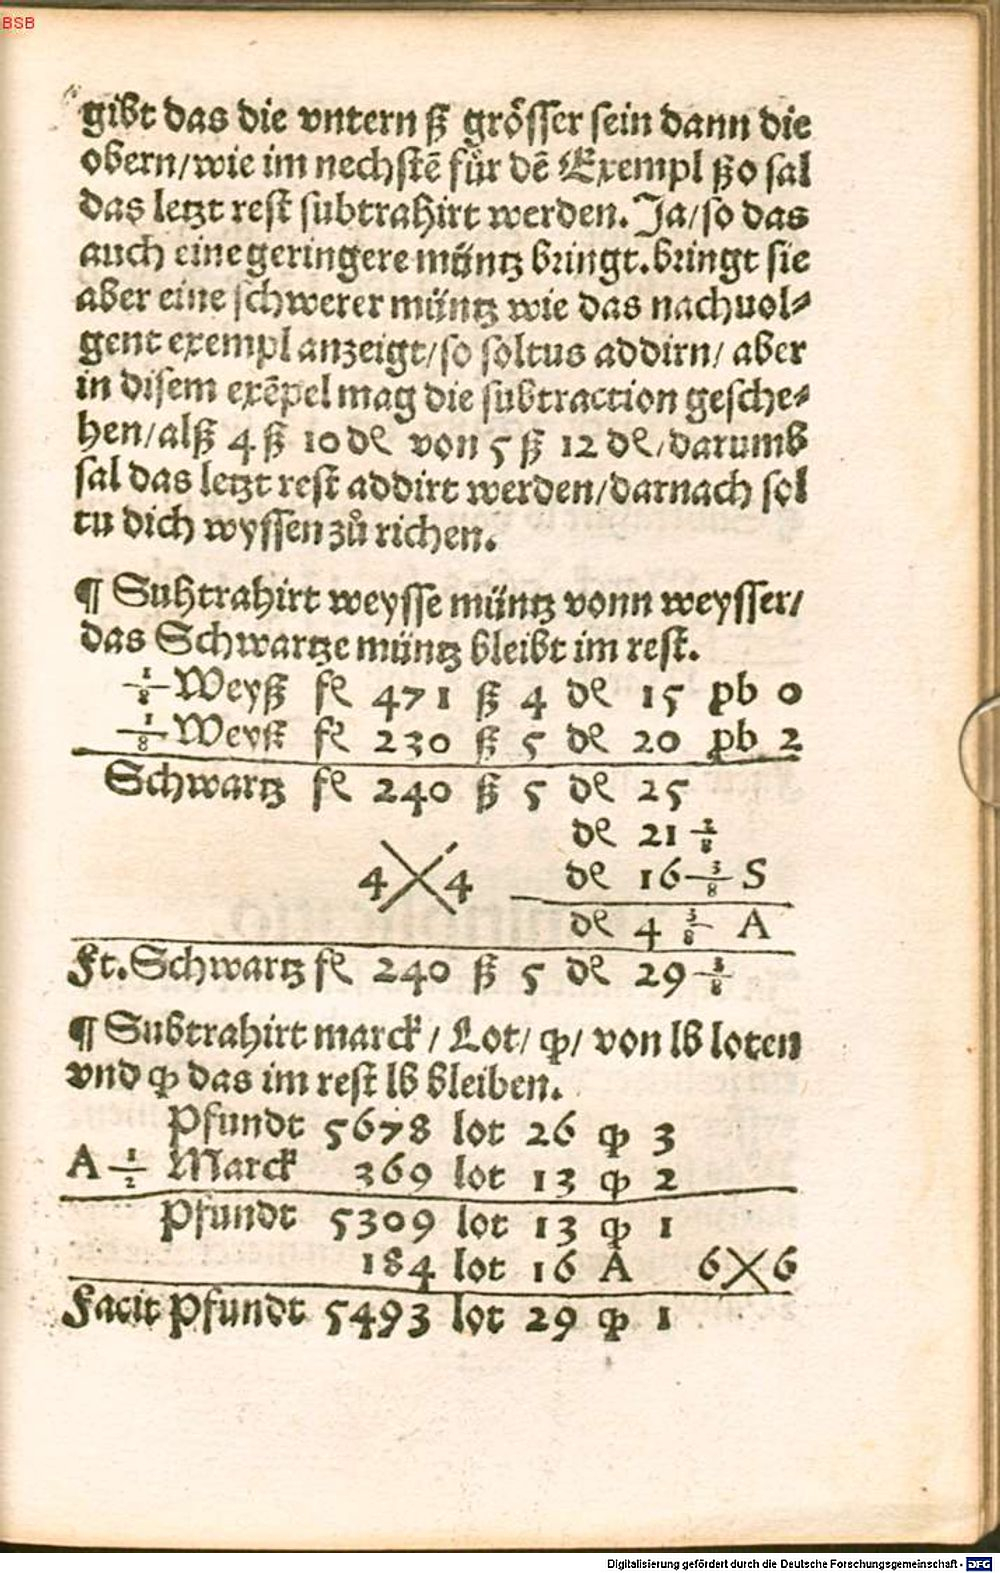 BSB
gibt das die vntern ß grösser sein dann die
obern/wie im nechstē für dē Exempl ßo sal
das letzt rest subtrahirt werden. Ja/so das
auch eine geringere müntz bringt. bringt sie
aber eine schwerer müntz wie das nachuol⸗
gent exempl anzeigt/so soltus addirn/ aber
in disem exēpel mag die subtraction gesche⸗
hen/alß 4 ß 10 de von 5 ß 12 de/darumb
sal das letzt rest addirt werden/darnach sol
tu dich wyssen zů richen.
¶ Suhtrahirt weysse müntz vonn weysser/
das Schwartze müntz bleibt im rest.
1/8 Weyß fl 471 ß 4 de 15 pb 0
1/8 Weyß fl 230 ß 5 de 20 pb 2
Schwartz fl 240 ß 5 de 25
de 21 2/8
4 X 4 de 16 3/8 S
de 4 3/8 A
Ft. Schwartz fl 240 ß 5 de 29 3/8
¶ Subtrahirt marck / Lot/ qp/ von lb loten
vnd qp das im rest lb bleiben.
Pfundt 5678 lot 26 qp 3
A 1/2 Marck 369 lot 13 qp 2
Pfundt 5309 lot 13 qp 1
184 lot 16 A 6 X 6
Facit Pfundt 5493 lot 29 qp 1
Digitalisierung gefördert durch die Deutsche Forschungsgemeinschaft - DFG